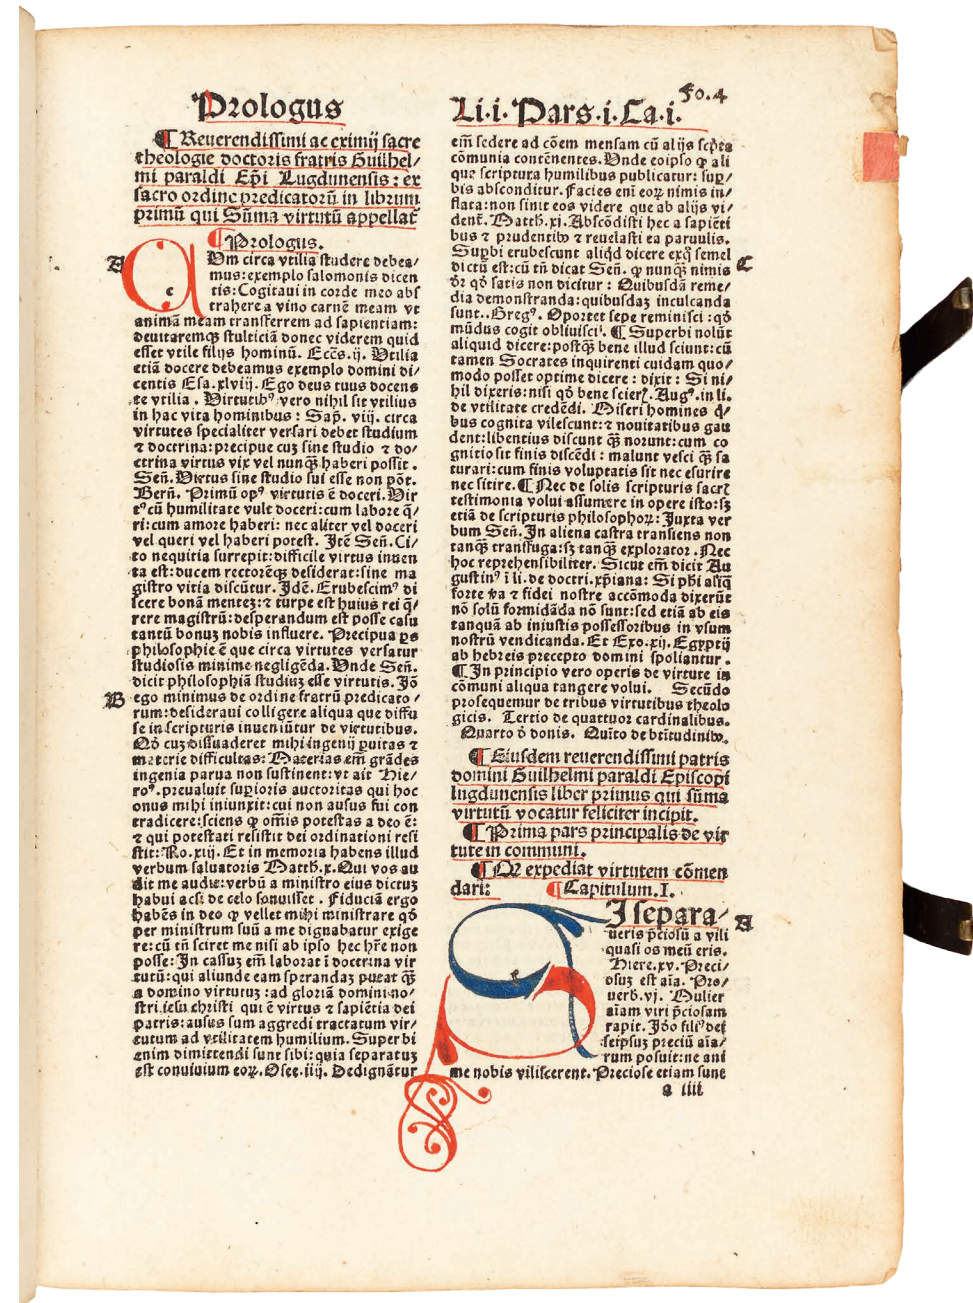 Prologus
Li·i· Pars ·i· Ca·i·
Fo.4
¶ Reuerendissimi ac eximij sacre
theologie doctoris fratris Guilhel/
mi paraldi Ep̄i Lugdunensis : ex
sacro ordine predicatorū in librum
primū qui Sūma virtutū appellat̄
¶ Prologus.
A
CUm circa vtilia studere debea/
mus: exemplo salomonis dicen
tis: Cogitaui in corde meo abs
trahere a vino carnē meam vt
animā meam transferrem ad sapientiam:
deuitaremqꝫ stulticiā donec viderem quid
esset vtile filijs hominū. Eccēs.ij. Vtilia
etiā docere debeamus exemplo domini di/
centis Esa.xlviij. Ego deus tuus docens
te vtilia . Virtutibꝰ vero nihil sit vtilius
in hac vita hominibus : Sap̄. viij. circa
virtutes specialiter versari debet studium
⁊ doctrina: precipue cuꝫ sine studio ⁊ do/
ctrina virtus vix vel nunqꝫ̄ haberi possit .
Sen̄. Virtus sine studio sui esse non pōt.
Bern̄. Primū opꝰ virtutis ē doceri. Vir
tꝰ cū humilitate vult doceri: cum labore q̄/
ri: cum amore haberi: nec aliter vel doceri
vel queri vel haberi potest. Itē Sen̄. Ci/
to nequitia surrepit: difficile virtus inuen
ta est: ducem rectorēqꝫ desiderat: sine ma
gistro vitia discūtur. Idē. Erubescimꝰ di
scere bonā menteꝫ: ⁊ turpe est huius rei q̄/
rere magistrū: desperandum est posse casu
tantū bonuꝫ nobis influere. Precipua ps
philosophie ē que circa virtutes versatur
studiosis minime negligēda. Vnde Sen̄.
dicit philosophiā studiuꝫ esse virtutis. Iō
B
ego minimus de ordine fratrū predicato /
rum: desideraui colligere aliqua que diffu
se in scripturis inueniūtur de virtutibus.
Qō cuꝫ dissuaderet mihi ingenij ꝑuitas ⁊
materie difficultas: Materias em̄ grādes
ingenia parua non sustinent: vt ait Hie/
roꝰ. preualuit suꝑioris auctoritas qui hoc
onus mihi iniunxit: cui non ausus fui con
tradicere: sciens ꝙ om̄is potestas a deo ē:
⁊ qui potestati resistit dei ordinationi resi
stit: Ro.xiij. Et in memoria habens illud
verbum saluatoris Matth.x. Qui vos au
dit me audit: verbū a ministro eius dictuꝫ
habui acsi de celo sonuisset . Fiduciā ergo
habēs in deo ꝙ vellet mihi ministrare qō
per ministrum suū a me dignabatur exige
re: cū tn̄ sciret me nisi ab ipso hec hr̄e non
posse: In cassuꝫ em̄ laborat ī doctrina vir
tutū: qui aliunde eam sperandaꝫ putat qꝫ̄
a domino virtutuꝫ : ad gloriā domini no/
stri iesu christi qui ē virtus ⁊ sapiētia dei
patris: ausus sum aggredi tractatum vir/
tutum ad vtilitatem humilium. Superbi
enim dimittendi sunt sibi: quia separatuꝫ
est conuiuium eoꝝ. Osee.iiij. Dedignātur
em̄ sedere ad cōem mensam cū alijs scp̄ta
cōmunia contēnentes. Vnde eo ipso ꝙ ali
que scriptura humilibus publicatur: suꝑ/
bis absconditur. Facies enī eoꝝ nimis in/
flata: non sinit eos videre que ab alijs vi/
dent̄. Matth.xj. Abscōdisti hec a sapiēti
bus ⁊ prudentibꝰ ⁊ reuelasti ea paruulis.
Suꝑbi erubescunt aliqd̄ dicere exqꝫ̄ semel
dictū est: cū tn̄ dicat Sen̄. ꝙ nunqꝫ̄ nimis
C
dr̄ qō satis non dicitur : Quibusdā reme/
dia demonstranda: quibusdaꝫ inculcanda
sunt. Gregꝰ. Oportet sepe reminisci : qō
mūdus cogit obliuisci. ¶ Superbi nolūt
aliquid dicere: postqꝫ̄ bene illud sciunt: cū
tamen Socrates inquirenti cuidam quo/
modo posset optime dicere : dixit : Si ni/
hil dixeris: nisi qō bene scieris. Augꝰ. in li.
de vtilitate credēdi. Miseri homines q̄/
bus cognita vilescunt: ⁊ nouitatibus gau
dent: libentius discunt qꝫ̄ norunt: cum co
gnitio sit finis discēdi : malunt vesci qꝫ̄ sa
turari: cum finis voluptatis sit nec esurire
nec sitire. ¶ Nec de solis scripturis sacris
testimonia volui assumere in opere isto: sꝫ
etiā de scripturis philosophoꝝ: Iuxta ver
bum Sen̄. In aliena castra transiens non
tanqꝫ̄ transfuga: sꝫ tanqꝫ̄ explorator . Nec
hoc reprehensibiliter. Sicut em̄ dicit Au
gustinꝰ ī li. de doctri. xp̄iana: Si phi aliq̄
forte va ⁊ fidei nostre accōmoda dixerūt
nō solū formidāda nō sunt: sed etiā ab eis
tanquā ab iniustis possessoribus in vsum
nostrū vendicanda. Et Exo.xij. Egyptij
ab hebreis precepto domini spoliantur .
¶ In principio vero operis de virtute in
cōmuni aliqua tangere volui. Secūdo
prosequemur de tribus virtutibus theolo
gicis. Tertio de quattuor cardinalibus.
Quarto ō donis. Quīto de btītudinibꝰ.
¶ Eiusdem reuerendissimi patris
domini Guilhelmi paraldi Episcopi
lugdunensis liber primus qui sūma
virtutū vocatur feliciter incipit.
¶ Prima pars principalis de vir
tute in communi.
¶ Qꝛ expediat virtutem cōmen
dari: ¶ Capitulum. I.
SI separa/
A
ueris p̄ciosū a vili
quasi os meū eris.
Hiere.xv. Preci/
osuꝫ est aīa. Pro/
uerb.vj. Mulier
aīam viri p̄ciosam
rapit. Iōo filiꝰ dei
seipsuꝫ preciū aīa/
rum posuit: ne ani
me nobis vilescerent. Preciose etiam sunt
a iiii